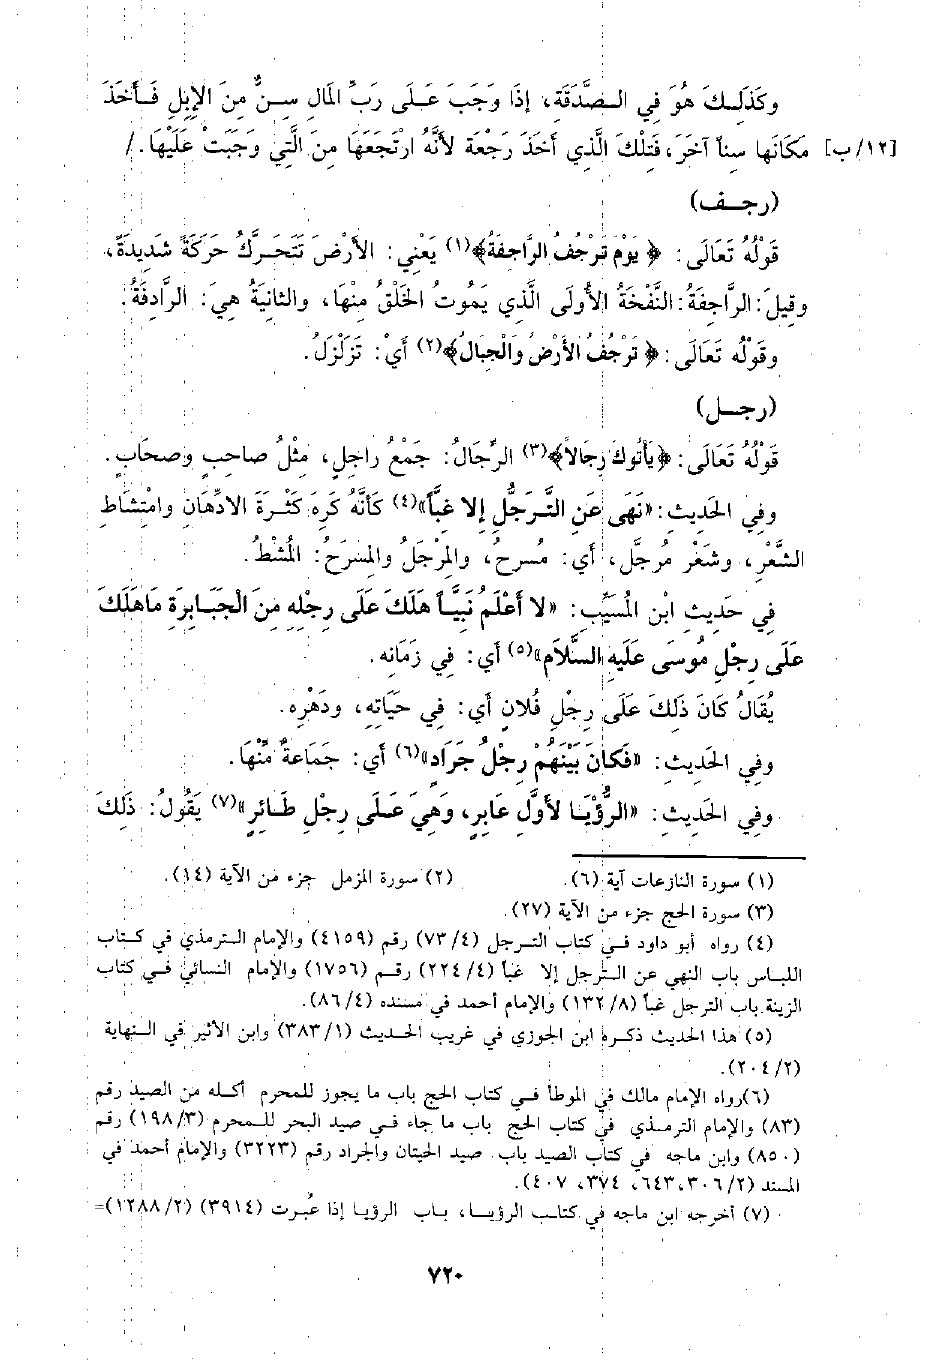 وَكَذَلِكَ هُوَ فِي الصَّدَقَةِ، إِذَا وَجَبَ عَلَى رَبِّ المَالِ سِنٌّ مِنَ الإِبِلِ فَأَخَذَ
[١٢/ب] مَكَانَها سناً آخَرَ، فَتِلْكَ الَّذي أَخَذَ رَجْعَة لأَنَّهُ ارْتَجَعَهَا مِنَ الَّتِي وَجَبَتْ عَلَيْهَا. /
(رجـف)
قَوْلُهُ تَعَالَى: ﴿يَوْمَ تَرْجُفُ الرَّاجِفَةُ﴾(١) يَعْنِي: الأَرْضَ تَتَحَرَّكُ حَرَكَةً شَدِيدَةً،
وقِيلَ: الرَّاجِفَةُ: النَّفْخَةُ الأُولَى الَّذي يَمُوتُ الخَلْقُ مِنْهَا، والثانِيَةُ هِيَ: الرَّادِفَةُ.
وقَوْلُه تَعَالَى: ﴿تَرْجُفُ الأَرْضُ وَالْجِبَالُ﴾(٢) أَيْ: تَزَلْزَلُ.
(رجـل)
قَوْلُهُ تَعَالَى: ﴿يَأْتُوكَ رِجَالاً﴾(٣) الرِّجَالُ: جَمْعُ راجِلٍ، مِثْلُ صاحِبٍ وصِحَابٍ.
وفِي الحَدِيث: «نَهَى عَنِ التَّرَجُّلِ إِلا غبَّاً»(٤) كَأَنَّهُ كَرِهَ كَثْرَةَ الادِّهَانِ وامْتِشَاطِ
الشَّعْرِ، وشَعْر مُرجَّل، أي: مُسرح، والمِرْجَلُ والمِسْرَحُ: المُشْطُ.
في حَدِيثِ ابْنِ المُسَيِّب: «لا أَعْلَمُ نَبِيَّاً هَلَكَ عَلَى رِجْلِهِ مِنَ الجَبَابِرَةِ مَاهَلَكَ
عَلَى رِجْلِ مُوسَى عَلَيهِ السَّلاَم»(٥) أي: فِي زَمَانِه.
يُقَالُ كَانَ ذَلكَ عَلَى رِجْلِ فُلانٍ أي: فِي حَيَاتِهِ، ودَهْرِه.
وفِي الحَدِيثِ: «فَكَانَ بَيْنَهُمْ رِجْلُ جَرَاد»(٦) أي: جَمَاعَةٌ مِّنْهَا.
وفِي الحَدِيثِ: «الرُّؤْيَا لأَوَّلِ عَابِرٍ، وَهِيَ عَلَى رِجْلِ طَائِرٍ»(٧) يَقُولُ: ذَلِكَ
(١) سورة النازعات آية (٦). (٢) سورة المزمل جزء من الآية (١٤).
(٣) سورة الحج جزء من الآية (٢٧).
(٤) رواه أبو داود في كتاب الترجل (٧٣/٤) رقم (٤١٥٩) والإمام الترمذي في كتاب
اللباس باب النهي عن الترجل إلا غباً (٢٢٤/٤) رقم (١٧٥٦) والإمام النسائي في كتاب
الزينة باب الترجل غباً (١٣٢/٨) والإمام أحمد في مسنده (٨٦/٤).
(٥) هذا الحديث ذكره ابن الجوزي في غريب الحديث (٣٨٣/١) وابن الأثير في النهاية
(٢٠٤/٢).
(٦)رواه الإمام مالك في الموطأ في كتاب الحج باب ما يجوز للمحرم أكله من الصيد رقم
(٨٣) والإمام الترمذي في كتاب الحج باب ما جاء في صيد البحر للمحرم (١٩٨/٣) رقم
(٨٥٠) وابن ماجه في كتاب الصيد باب صيد الحيتان والجراد رقم (٣٢٢٣) والإمام أحمد في
المسند (٣٠٦/٢، ٦٤٣، ٣٧٤، ٤٠٧).
(٧) أخرجه ابن ماجه في كتاب الرؤيا، باب الرؤيا إذا عُبرت (٣٩١٤) (١٢٨٨/٢)=
٧٢٠